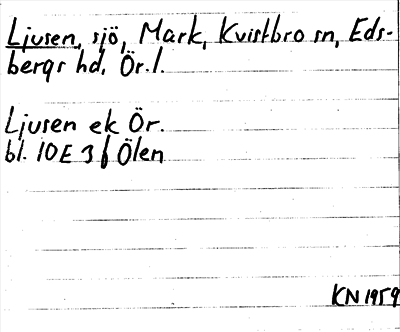 Ljusen, sjö, Mark, Kvistbro sn, Eds-
bergs hd, Ör. l.
Ljusen ek Ör.
bl. 10E 3f Ölen
KN 1959